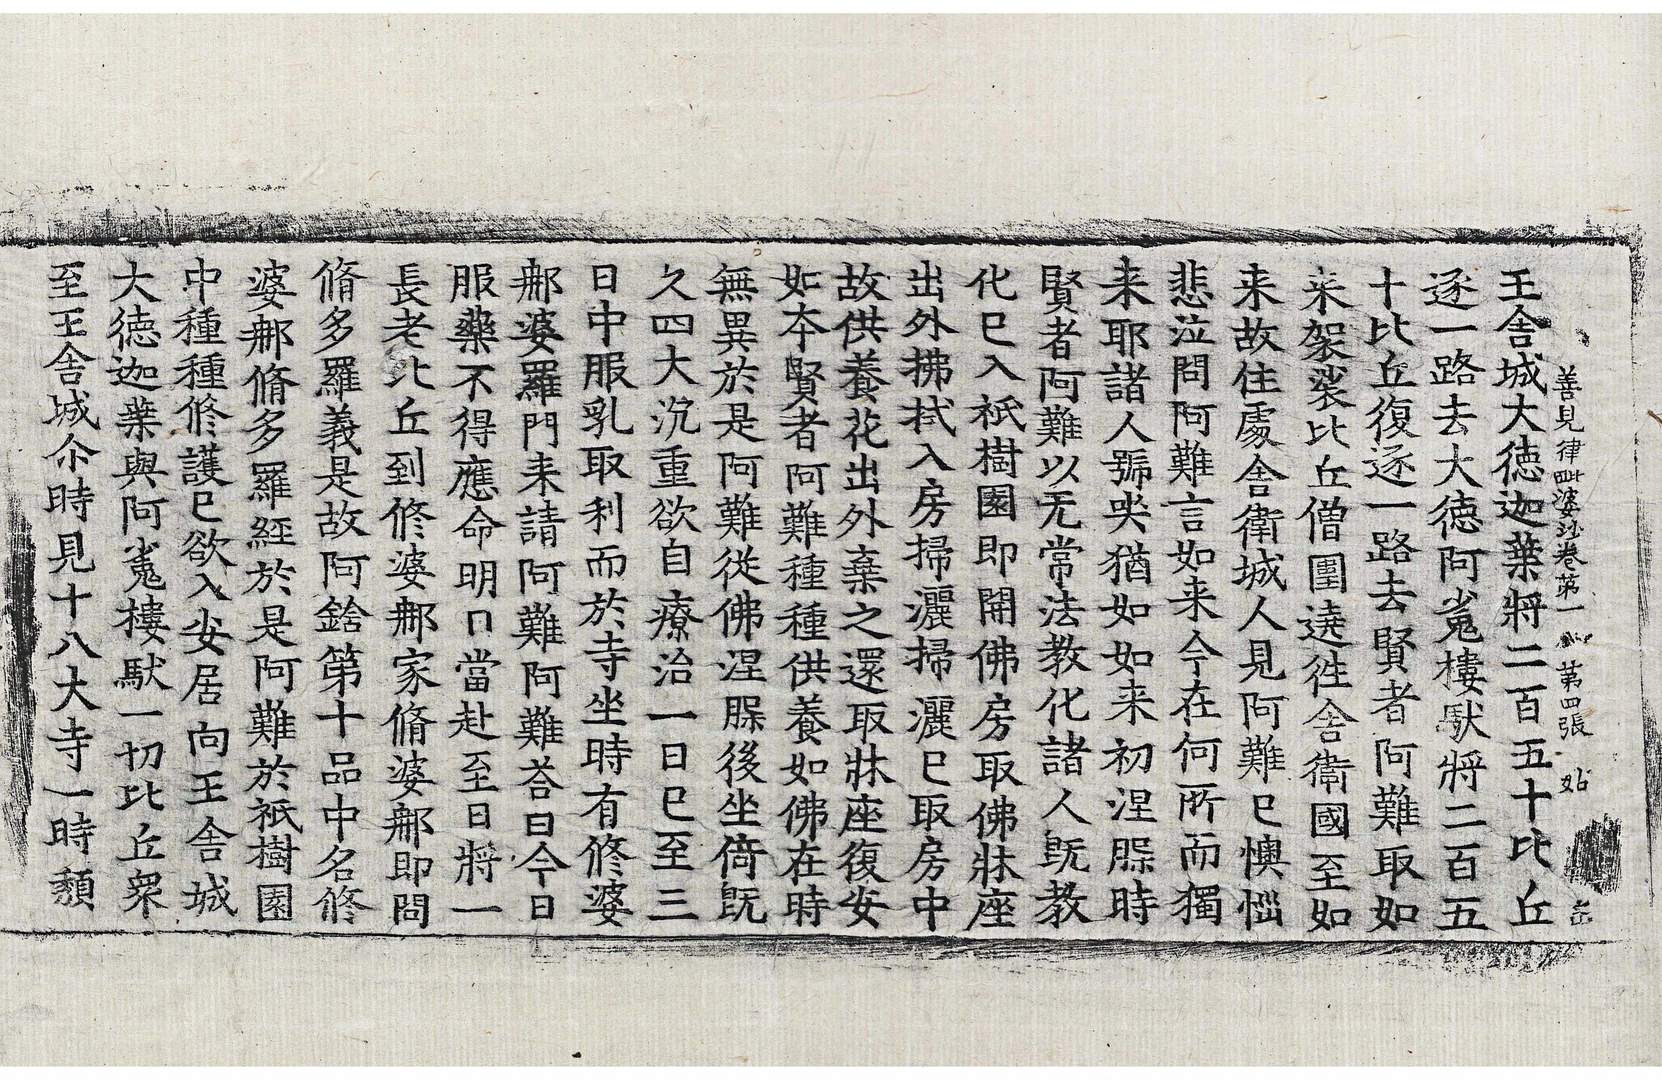 善見律毗婆沙卷第一 第四張 姑
王舍城大徳迦葉將二百五十比丘
逐一路去大徳阿㝹樓馱將二百五
十比丘復逐一路去賢者阿難取如
来袈裟比丘僧圍遶徃舍衛國至如
来故住處舍衛城人見阿難已懊惱
悲泣問阿難言如来今在何所而獨
来耶諸人號哭猶如如来初涅槃時
賢者阿難以无常法教化諸人既教
化已入祇樹園即開佛房取佛牀座
出外拂拭入房掃灑掃灑已取房中
故供養花出外棄之還取牀座復安
如本賢者阿難種種供養如佛在時
無異於是阿難從佛涅槃後坐倚既
久四大沉重欲自療治一日已至三
日中服乳取利而於寺坐時有修婆
那婆羅門来請阿難阿難荅曰今日
服藥不得應命明日當赴至日將一
長老比丘到修婆那家脩婆那即問
脩多羅義是故阿鋡第十品中名修
婆那脩多羅經於是阿難於祇樹園
中種種修護已欲入安居向王舍城
大徳迦葉與阿㝹樓馱一切比丘衆
至王舍城尒時見十八大寺一時頽